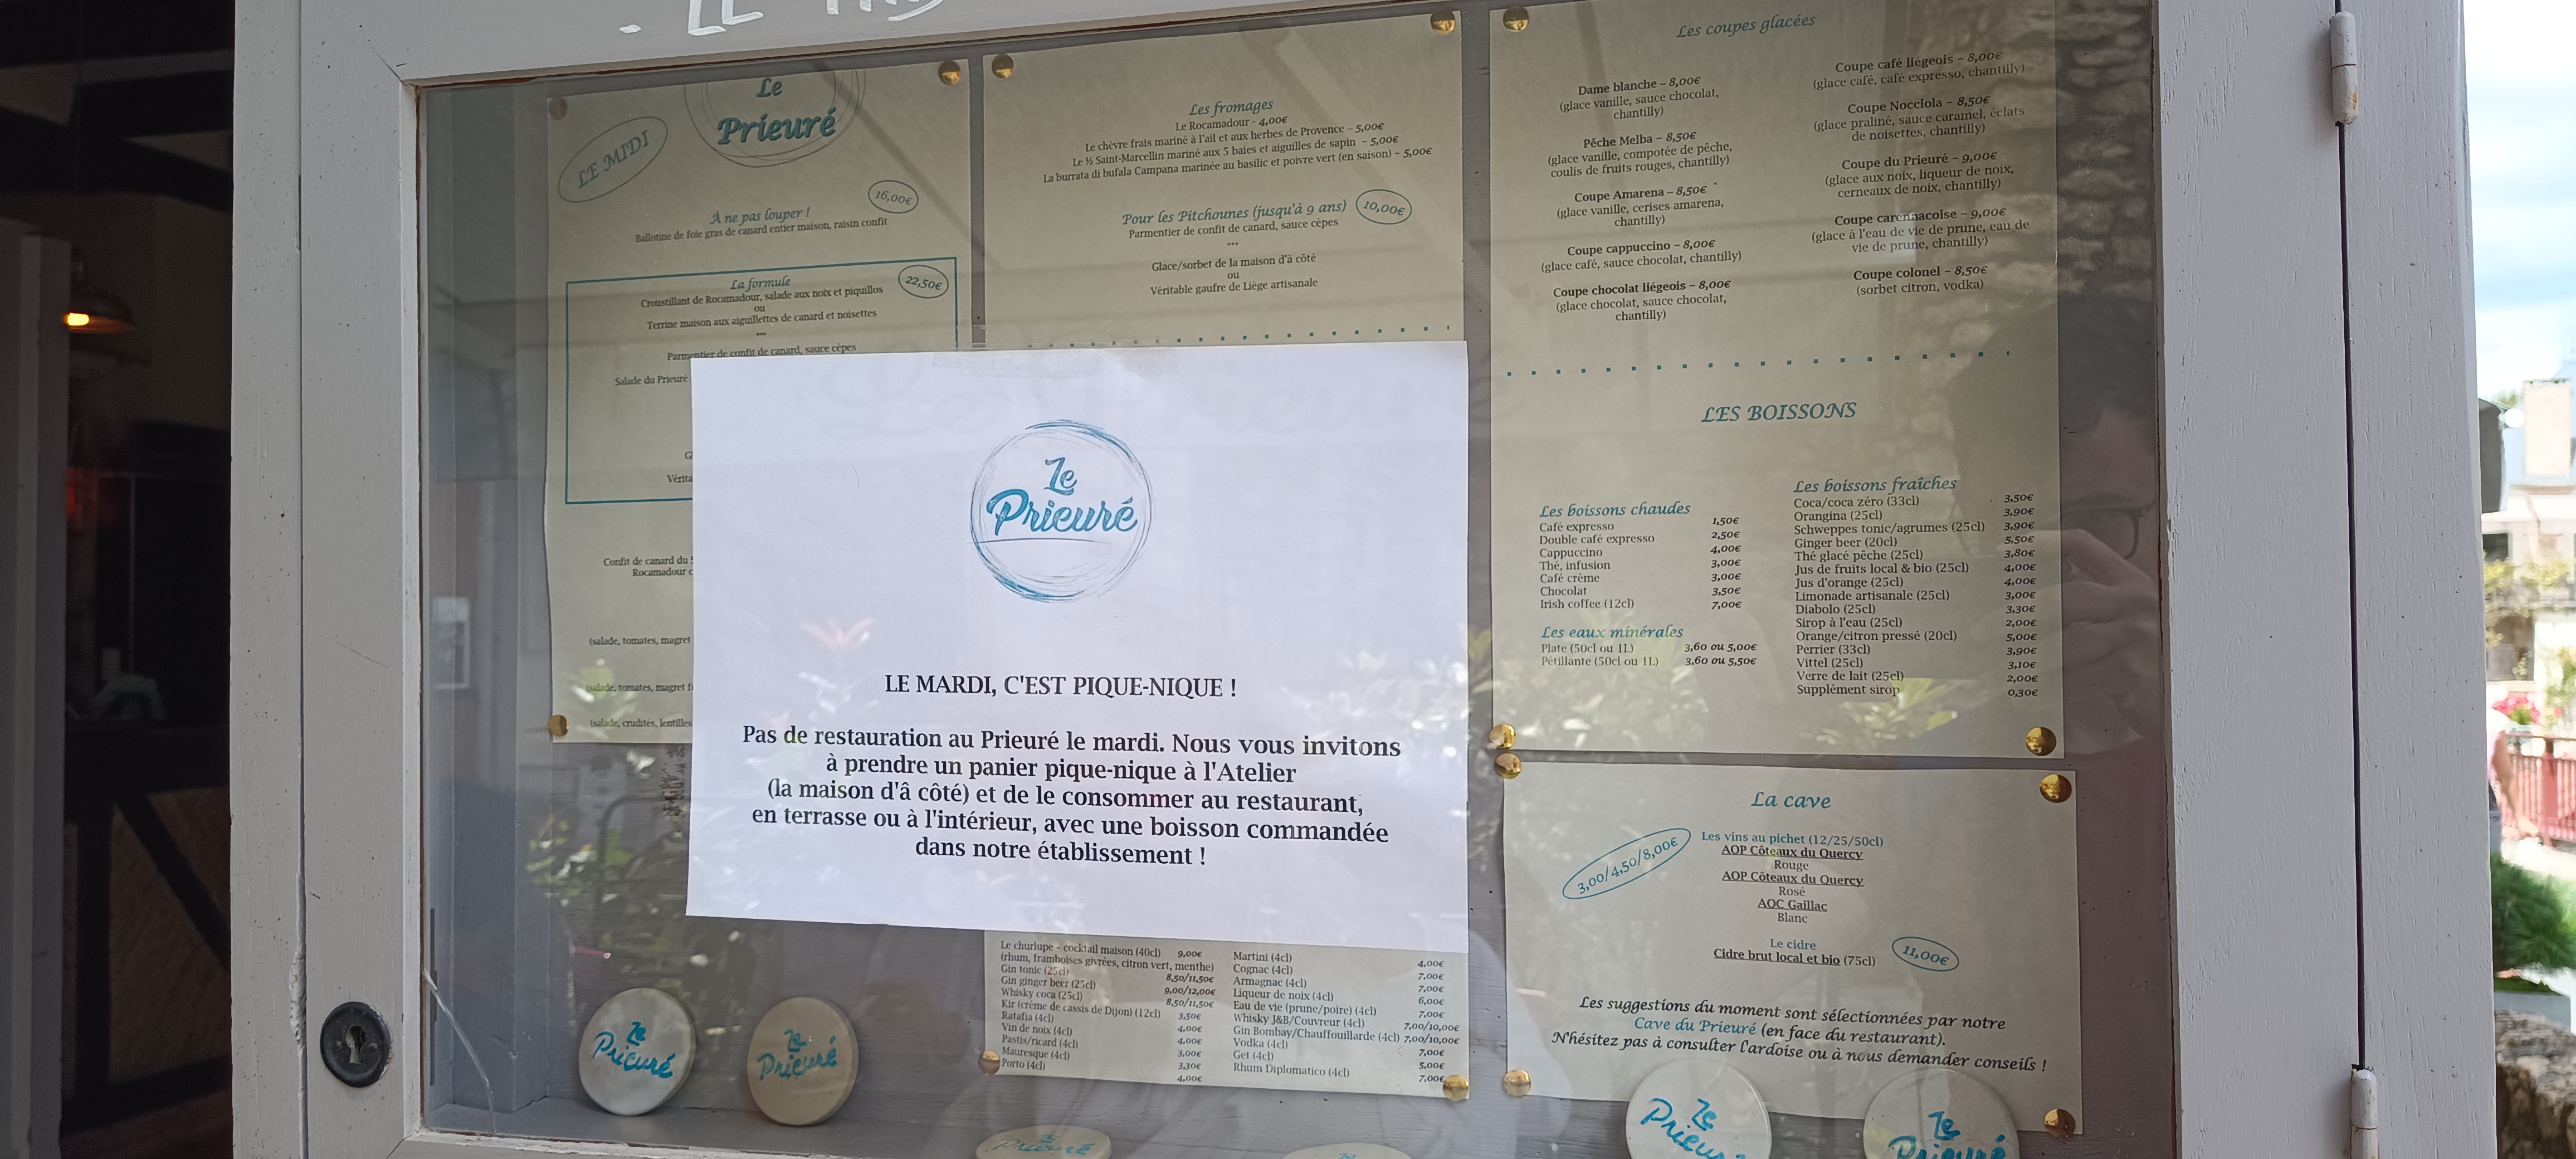 Le
Prieuré
LE MIDI
16,00€
À ne pas louper !
Ballotine de foie gras de canard entier maison, raisin confit
La formule
22,50€
Croustillant de Rocamadour, salade aux noix et piquillos
ou
Terrine maison aux aiguillettes de canard et noisettes
***
Parmentier de confit de canard, sauce cèpes
Salade du Prieuré
G
Vérita
Confit de canard du S
Rocamadour c
(salade, tomates, magret
(salade, tomates, magret f
(salade, crudités, lentilles
Les fromages
Le Rocamadour - 4,00€
Le chèvre frais mariné à l'ail et aux herbes de Provence – 5,00€
Le ½ Saint-Marcellin mariné aux 5 baies et aiguilles de sapin – 5,00€
La burrata di bufala Campana marinée au basilic et poivre vert (en saison) – 5,00€
Pour les Pitchounes (jusqu'à 9 ans)
10,00€
Parmentier de confit de canard, sauce cèpes
***
Glace/sorbet de la maison d'à côté
ou
Véritable gaufre de Liège artisanale
Le
Prieuré
LE MARDI, C'EST PIQUE-NIQUE !
Pas de restauration au Prieuré le mardi. Nous vous invitons
à prendre un panier pique-nique à l'Atelier
(la maison d'â côté) et de le consommer au restaurant,
en terrasse ou à l'intérieur, avec une boisson commandée
dans notre établissement !
Le churlupe – cocktail maison (40cl) 9,00€
(rhum, framboises givrées, citron vert, menthe)
Gin tonic (25cl) 8,50/11,50€
Gin ginger beer (25cl) 9,00/12,00€
Whisky coca (25cl) 8,50/11,50€
Kir (crème de cassis de Dijon) (12cl) 3,50€
Ratafia (4cl) 4,00€
Vin de noix (4cl) 4,00€
Pastis/ricard (4cl) 3,00€
Mauresque (4cl) 3,30€
Porto (4cl) 4,00€
Martini (4cl) 4,00€
Cognac (4cl) 7,00€
Armagnac (4cl) 7,00€
Liqueur de noix (4cl) 6,00€
Eau de vie (prune/poire) (4cl) 7,00€
Whisky J&B/Couvreur (4cl) 7,00/10,00€
Gin Bombay/Chauffouillarde (4cl) 7,00/10,00€
Vodka (4cl) 7,00€
Get (4cl) 5,00€
Rhum Diplomatico (4cl) 7,00€
Les coupes glacées
Dame blanche – 8,00€
(glace vanille, sauce chocolat,
chantilly)
Pêche Melba – 8,50€
(glace vanille, compotée de pêche,
coulis de fruits rouges, chantilly)
Coupe Amarena – 8,50€
(glace vanille, cerises amarena,
chantilly)
Coupe cappuccino – 8,00€
(glace café, sauce chocolat, chantilly)
Coupe chocolat liégeois – 8,00€
(glace chocolat, sauce chocolat,
chantilly)
Coupe café liégeois – 8,00€
(glace café, café expresso, chantilly)
Coupe Nocciola – 8,50€
(glace praliné, sauce caramel, éclats
de noisettes, chantilly)
Coupe du Prieuré – 9,00€
(glace aux noix, liqueur de noix,
cerneaux de noix, chantilly)
Coupe carennacoise – 9,00€
(glace à l'eau de vie de prune, eau de
vie de prune, chantilly)
Coupe colonel – 8,50€
(sorbet citron, vodka)
LES BOISSONS
Les boissons chaudes
Café expresso 1,50€
Double café expresso 2,50€
Cappuccino 4,00€
Thé, infusion 3,00€
Café crème 3,00€
Chocolat 3,50€
Irish coffee (12cl) 7,00€
Les eaux minérales
Plate (50cl ou 1L) 3,60 ou 5,00€
Pétillante (50cl ou 1L) 3,60 ou 5,50€
Les boissons fraîches
Coca/coca zéro (33cl) 3,50€
Orangina (25cl) 3,90€
Schweppes tonic/agrumes (25cl) 3,90€
Ginger beer (20cl) 5,50€
Thé glacé pêche (25cl) 3,80€
Jus de fruits local & bio (25cl) 4,00€
Jus d'orange (25cl) 4,00€
Limonade artisanale (25cl) 3,00€
Diabolo (25cl) 3,30€
Sirop à l'eau (25cl) 2,00€
Orange/citron pressé (20cl) 5,00€
Perrier (33cl) 3,90€
Vittel (25cl) 3,10€
Verre de lait (25cl) 2,00€
Supplément sirop 0,30€
La cave
3,00/4,50/8,00€
Les vins au pichet (12/25/50cl)
AOP Côteaux du Quercy
Rouge
AOP Côteaux du Quercy
Rosé
AOC Gaillac
Blanc
Le cidre
Cidre brut local et bio (75cl)
11,00€
Les suggestions du moment sont sélectionnées par notre
Cave du Prieuré (en face du restaurant).
N'hésitez pas à consulter l'ardoise ou à nous demander conseils !
Le
Prieuré
Le
Prieuré
Le
Prieuré
Le
Prieuré
Le
Prieuré